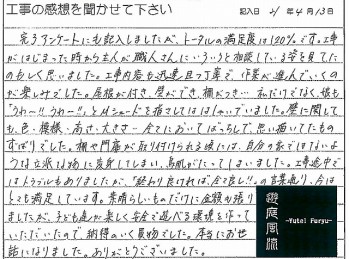 工事の感想を聞かせて下さい 記入日 21年4月13日
完了アンケートにも記入しましたが、トータルの満足度は120%です。工事
がはじまった時から主人が職人さんにいろいろと相談している姿を見てた
のもしく思いました。工事内容も迅速且つ丁寧で、作業が進んでいくの
が楽しみでした。屋根が付き、壁ができ、棚がつき… 私だけでなく、娘も
「うわ~!! うわ~!!」とAシェードを指さしてははしゃいでいました。壁に関して
も、色・模様・高さ・大きさ… 全てにおいてばっちしで、思い描いてたもの
ずばりでした。棚や門扉が取り付けられる頃には、自分の家ではないよ
うな立派な物に変身してしまい、鳥肌がたってしまいました。工事途中で
はトラブルもありましたが、「終わり良ければ全て良し!!」の言葉通り、今は
とても満足しています。素晴らしいものだけに金額の張り
ましたが、子ども達が楽しく安全で遊べる環境を作って
いただいたので、納得のいく買物でした。本当にお世
話になりました。ありがとうございました。
遊庭風流
-Yutei Furyu-